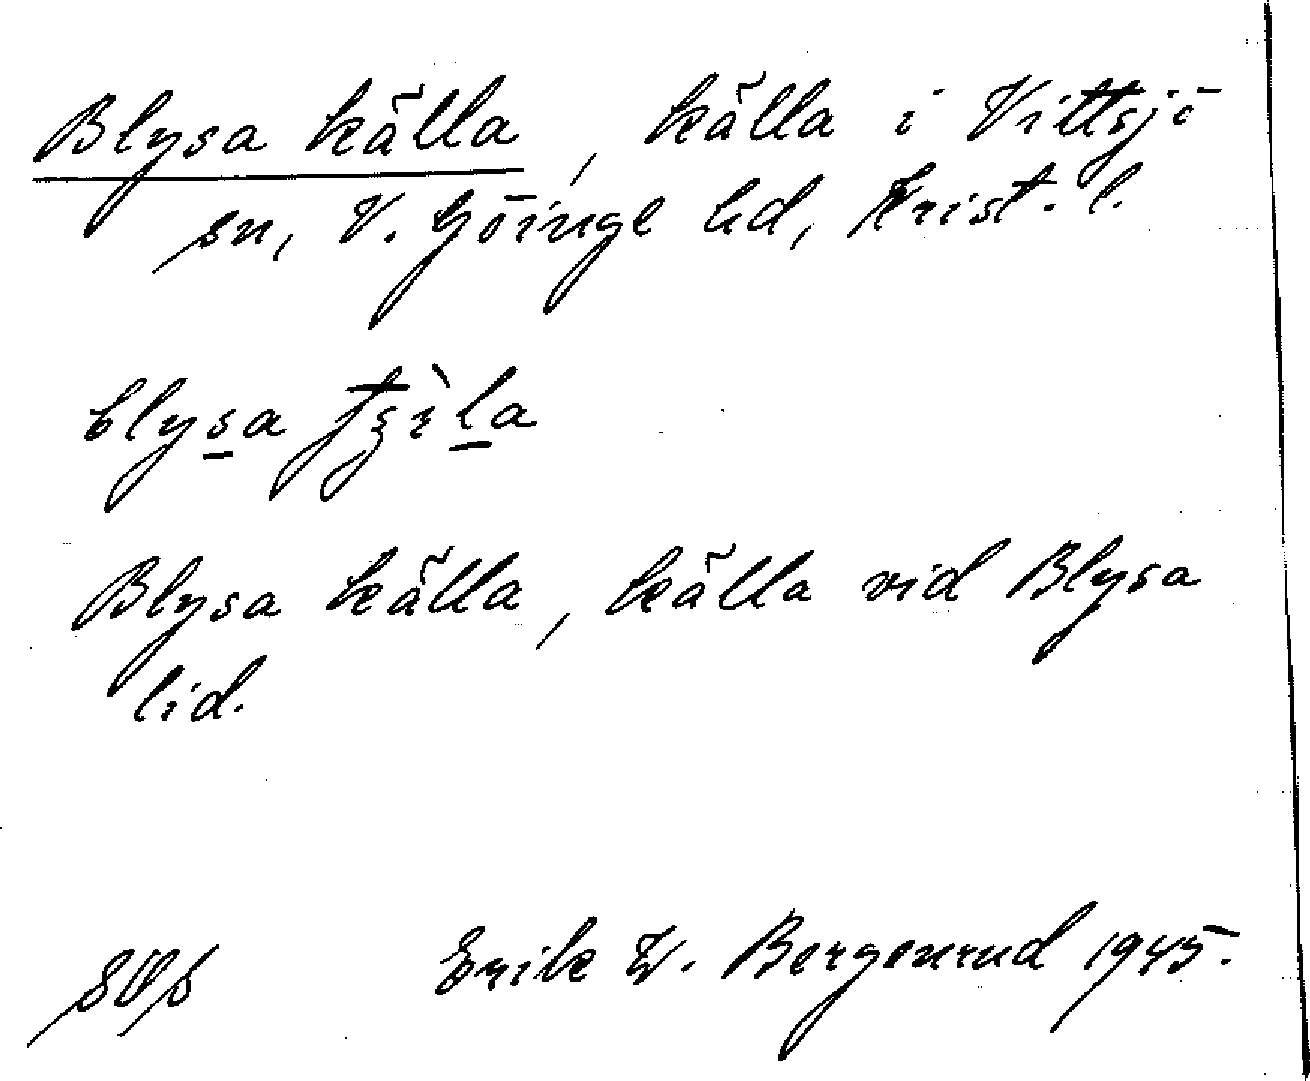 Blysa källa, källa i Vittsjö
sn, V. Göinge hd, Krist. l.
blysa
Blysa källa, källa vid Blysa
lid.
Erik W. Bergenrud 1945.